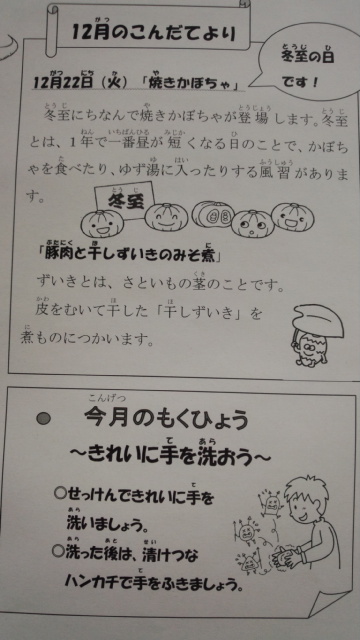 12月のこんだてより
冬至の日
です!
12月22日(火)「焼きかぼちゃ」
冬至にちなんで焼きかぼちゃが登場します。冬至
とは、1年で一番昼が短くなる日のことで、かぼち
ゃを食べたり、ゆず湯に入ったりする風習がありま
す。
冬至
「豚肉と干しずいきのみそ煮」
ずいきとは、さといもの茎のことです。
皮をむいて干した「干しずいき」を
煮ものにつかいます。
今月のもくひょう
~きれいに手を洗おう~
○せっけんできれいに手を
洗いましょう。
○洗った後は、清けつな
ハンカチで手をふきましょう。